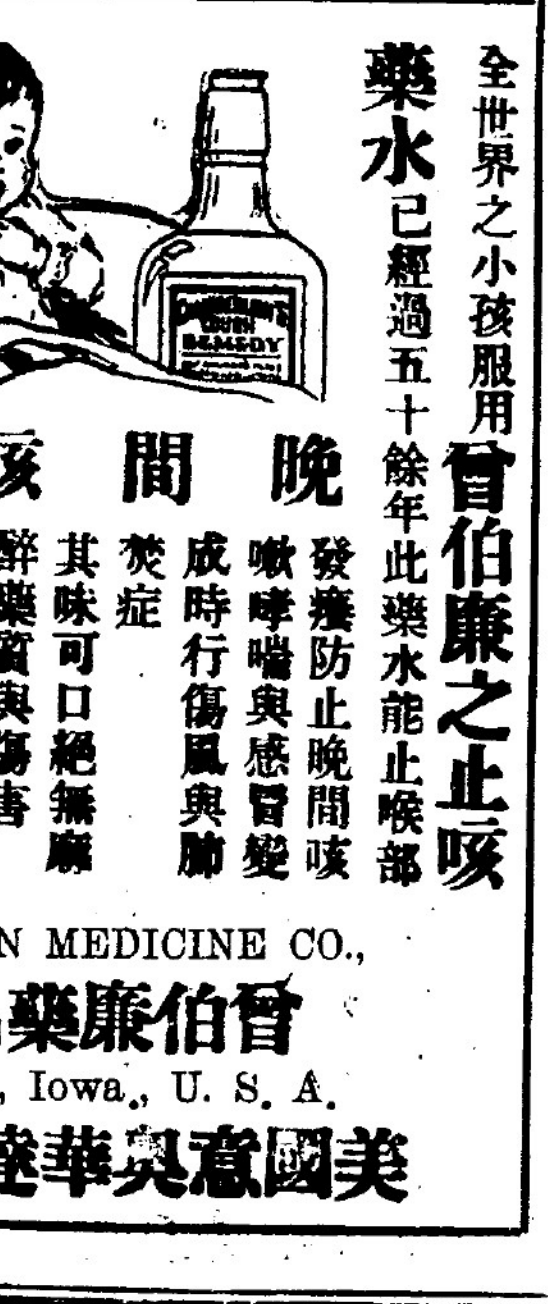 全世界之小孩服用曾伯廉之止咳
藥水已經過五十餘年此藥水能止喉部
COUGH
REMEDY
晚間咳
發癢防止晚間咳
嗽哮喘與感冒變
成時行傷風與肺
焚症
其味可口絕無麻
醉藥質與傷害
N MEDICINE CO.,
曾伯廉藥
, Iowa., U. S. A.
美國意奧華